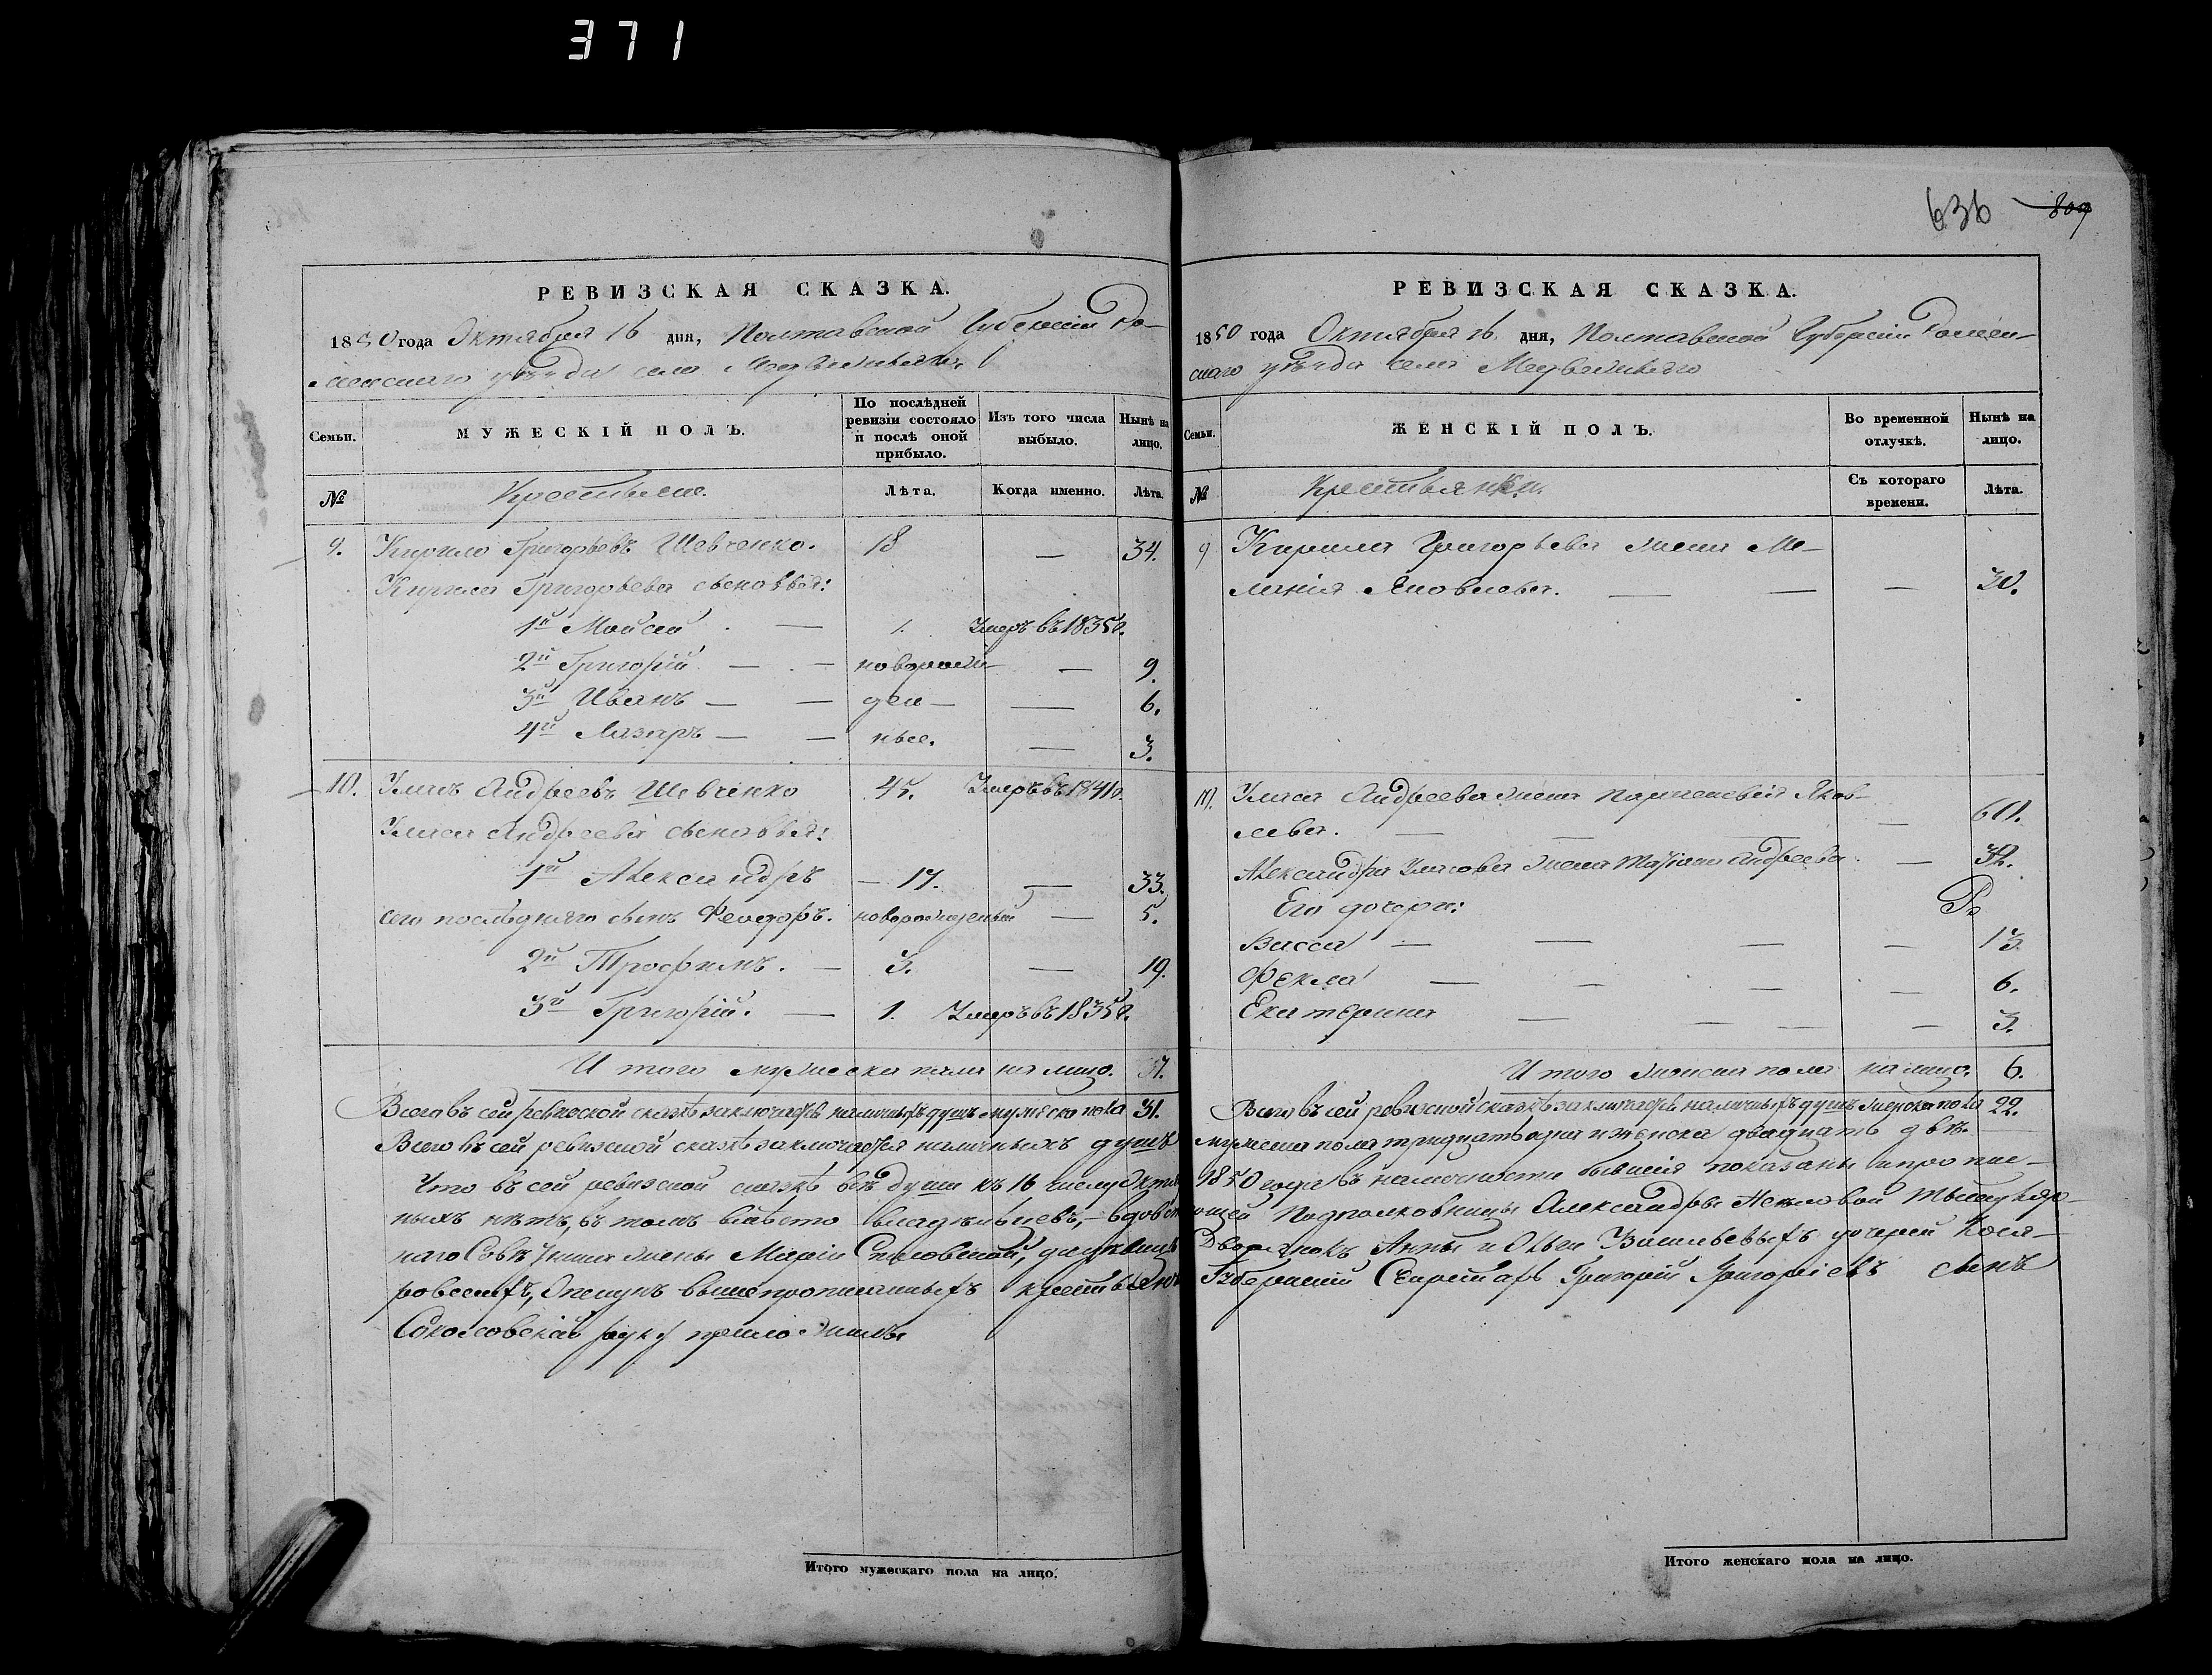 371
636 809
РЕВИЗСКАЯ СКАЗКА.
1850 года Октября 16 дня, Полтавской Губернiи Ро-
менскаго уѣзда села
Семьи.
МУЖЕСКІЙ ПОЛЪ.
По послѣдней ревизіи состояло и послѣ оной прибыло.
Изъ того числа выбыло.
Нынѣ на лицо.
№ Крестьяне. Лѣта. Когда именно. Лѣта.
9. Кирило Григорьевъ Шевченко. 18 — 34.
Кирила Григорьева сыновья:
1й Мойсей — 1. Умеръ въ 1835г.
2й Григорій — — новорож- — 9.
3й Иванъ — — ден- — 6.
4й Лазарь — — ные. — 3.
10. Уласъ Андреевъ Шевченко 45. Умеръ въ 1841г.
Уласа Андреева сыновья:
1й Александръ — 17. — 33.
сего послѣдняго сынъ Феодоръ. новорожденный — 5.
2й Трофимъ. — 3. — 19.
3й Григорій. — 1. Умеръ въ 1835г.
И того мужеска пола на лицо. 7.
Всего въ сей ревизской сказкѣ заключается наличныхъ душъ мужеска пола 31.
Всего въ сей ревизской сказкѣ заключается наличныхъ душъ
Что въ сей ревизской сказкѣ всѣ души къ 16 числу Октя
ныхъ нѣтъ, въ томъ вмѣсто владѣльцевъ, — вдовы
наго жены Маріи
Опекунъ вышепрописанныхъ крестьянъ
Соколовскій руку приложилъ
Итого мужескаго пола на лицо.
РЕВИЗСКАЯ СКАЗКА.
1850 года Октября 16 дня, Полтавской Губернiи Ромен-
скаго уѣзда села
Семьи.
ЖЕНСКІЙ ПОЛЪ.
Во временной отлучкѣ.
Нынѣ на лицо.
№ Крестьянки. Съ котораго времени. Лѣта.
9 Кирила Григорьева жена Ме-
ланія Яковлева. — — — 30.
10. Уласа Андреева жена Яков-
лева. — — — — 60.
Александра Уласова жена Андреева. — 32.
Его дочери:
Васса — — — — 13
Фекла — — — — 6.
Екатерина — — — — 3.
И того женска пола на лицо. 6.
Всего въ сей ревизской сказкѣ заключается наличныхъ душъ женска пола 22.
мужеска пола тридцать одна и женска двадцать двѣ.
1850 года въ наличности бывшія показаны и пропис-
Подполковницы Александры
Дворянокъ Анны и Ольги Васильевыхъ дочерей
Губернскій Секретарь Григорій Григоріевъ сынъ
Итого женскаго пола на лицо.